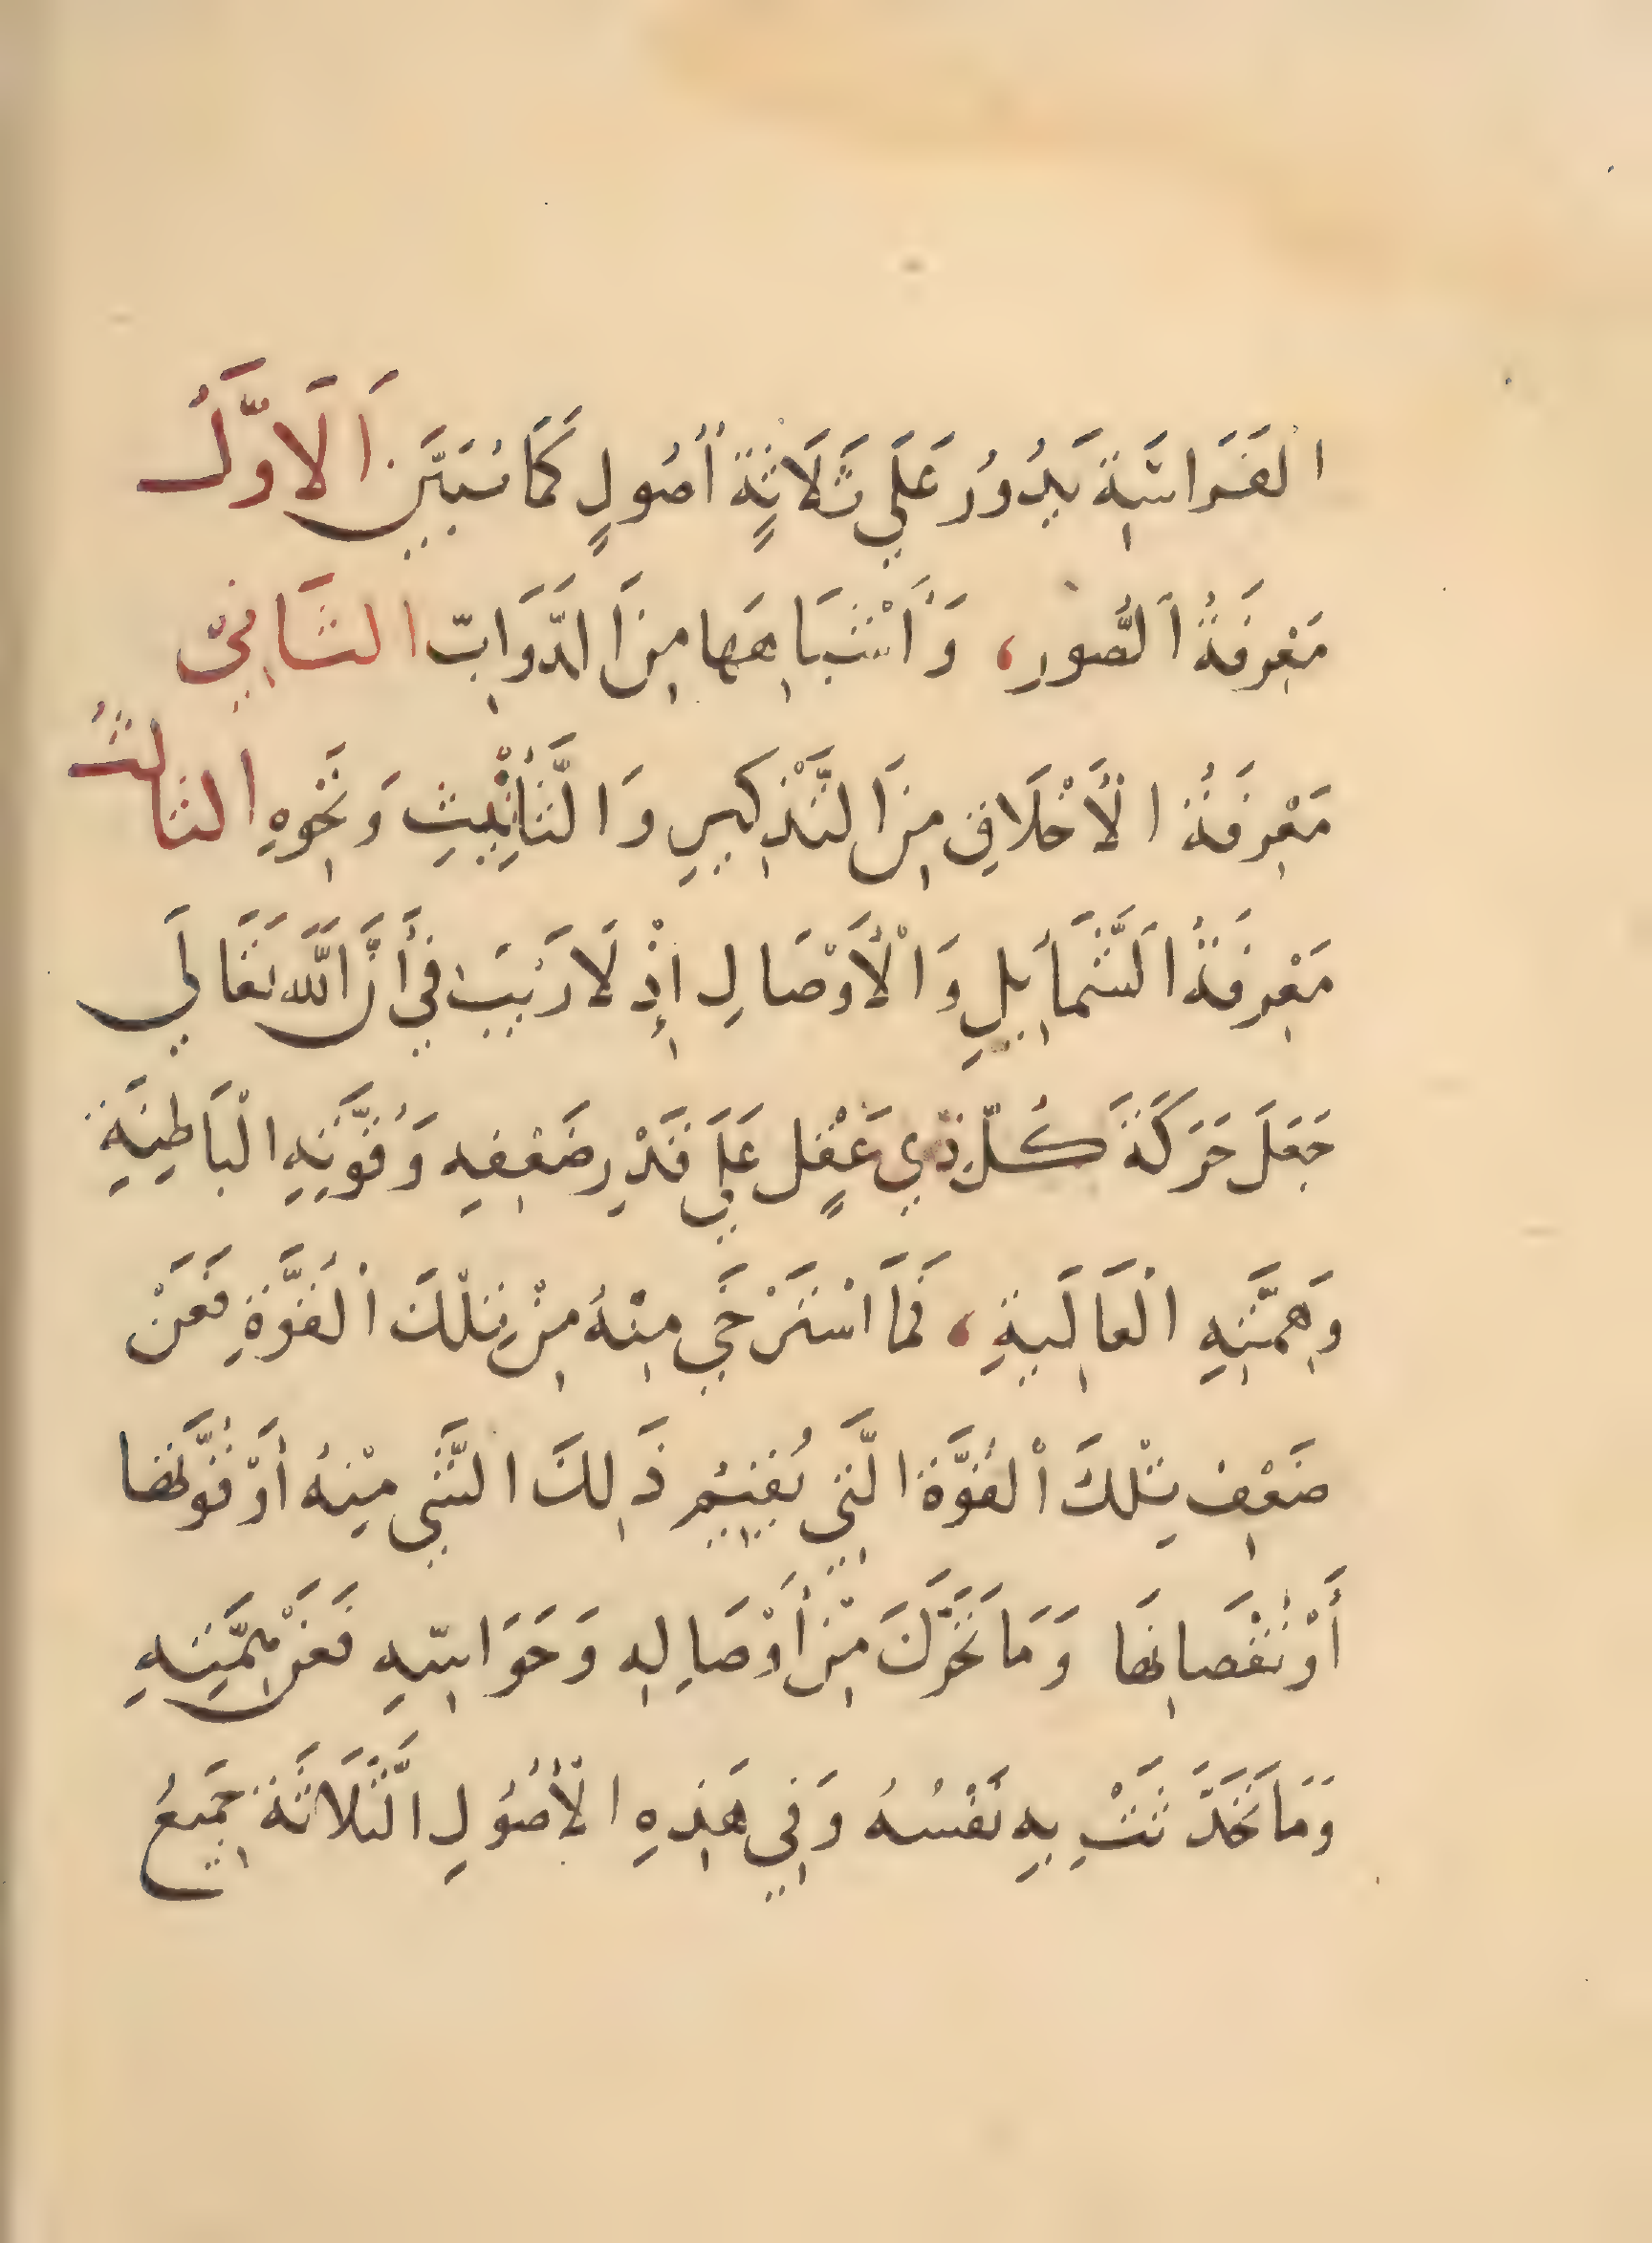 الفَرَاسَةِ يَدُورُ عَلَي ثَلَاثَةٍ أُصُولٍ كَمَا سُنبَيّن اَلَاوَّلُ
مَعْرِفَةُ اَلصُّورِ، وَأَشْبَاهِهَا مِنَ الدَّوَابّ الثَانِيّ
مَعْرِفَةُ الْأَخْلَاقِ مِنَ التَّذْكِيرِ وَالتَّأْنِيْثِ وَنَحْوِهِ الثالثُ
مَعْرِفَةُ الشَّمَائِلِ وَالْأَوْصَالِ إِذْ لَا رَيْبَ فِي أَنَّ اللَّه تَعَالَي
جَعَلَ حَرَكَةَ كُلّ ذِي عَقْلٍ عَلَي قَدْرِ ضَعْفِهِ وَقُوَّتِهِ الْبَاطِنَةِ
وَهِمَّتِهِ الْعَالِيةِ، فَمَا اسْتَرْخَي مِنْهُ مِنْ تِلْكَ الْقُوَّةِ فَعَنْ
ضَعْفِ تِلْكَ اْلقُوَّة الَّتِي يُقِيْمُ ذَلِكَ الشَّيْ مِنْهُ أَوْ قُوَّتهَا
أَوْ نُقْصَانِهَا وَمَا تَحَرَّكَ مِنْ أَوْصَالِهِ وَحَوَاسِّهِ فَعَنْ هِمَّتِهِ
وَمَا تَحَدَّثَتْ بِهِ نَفْسُهُ وَفِي هَذِهِ الْأُصُوُلِ الثَّلَاثَةِ جَمِيعُ